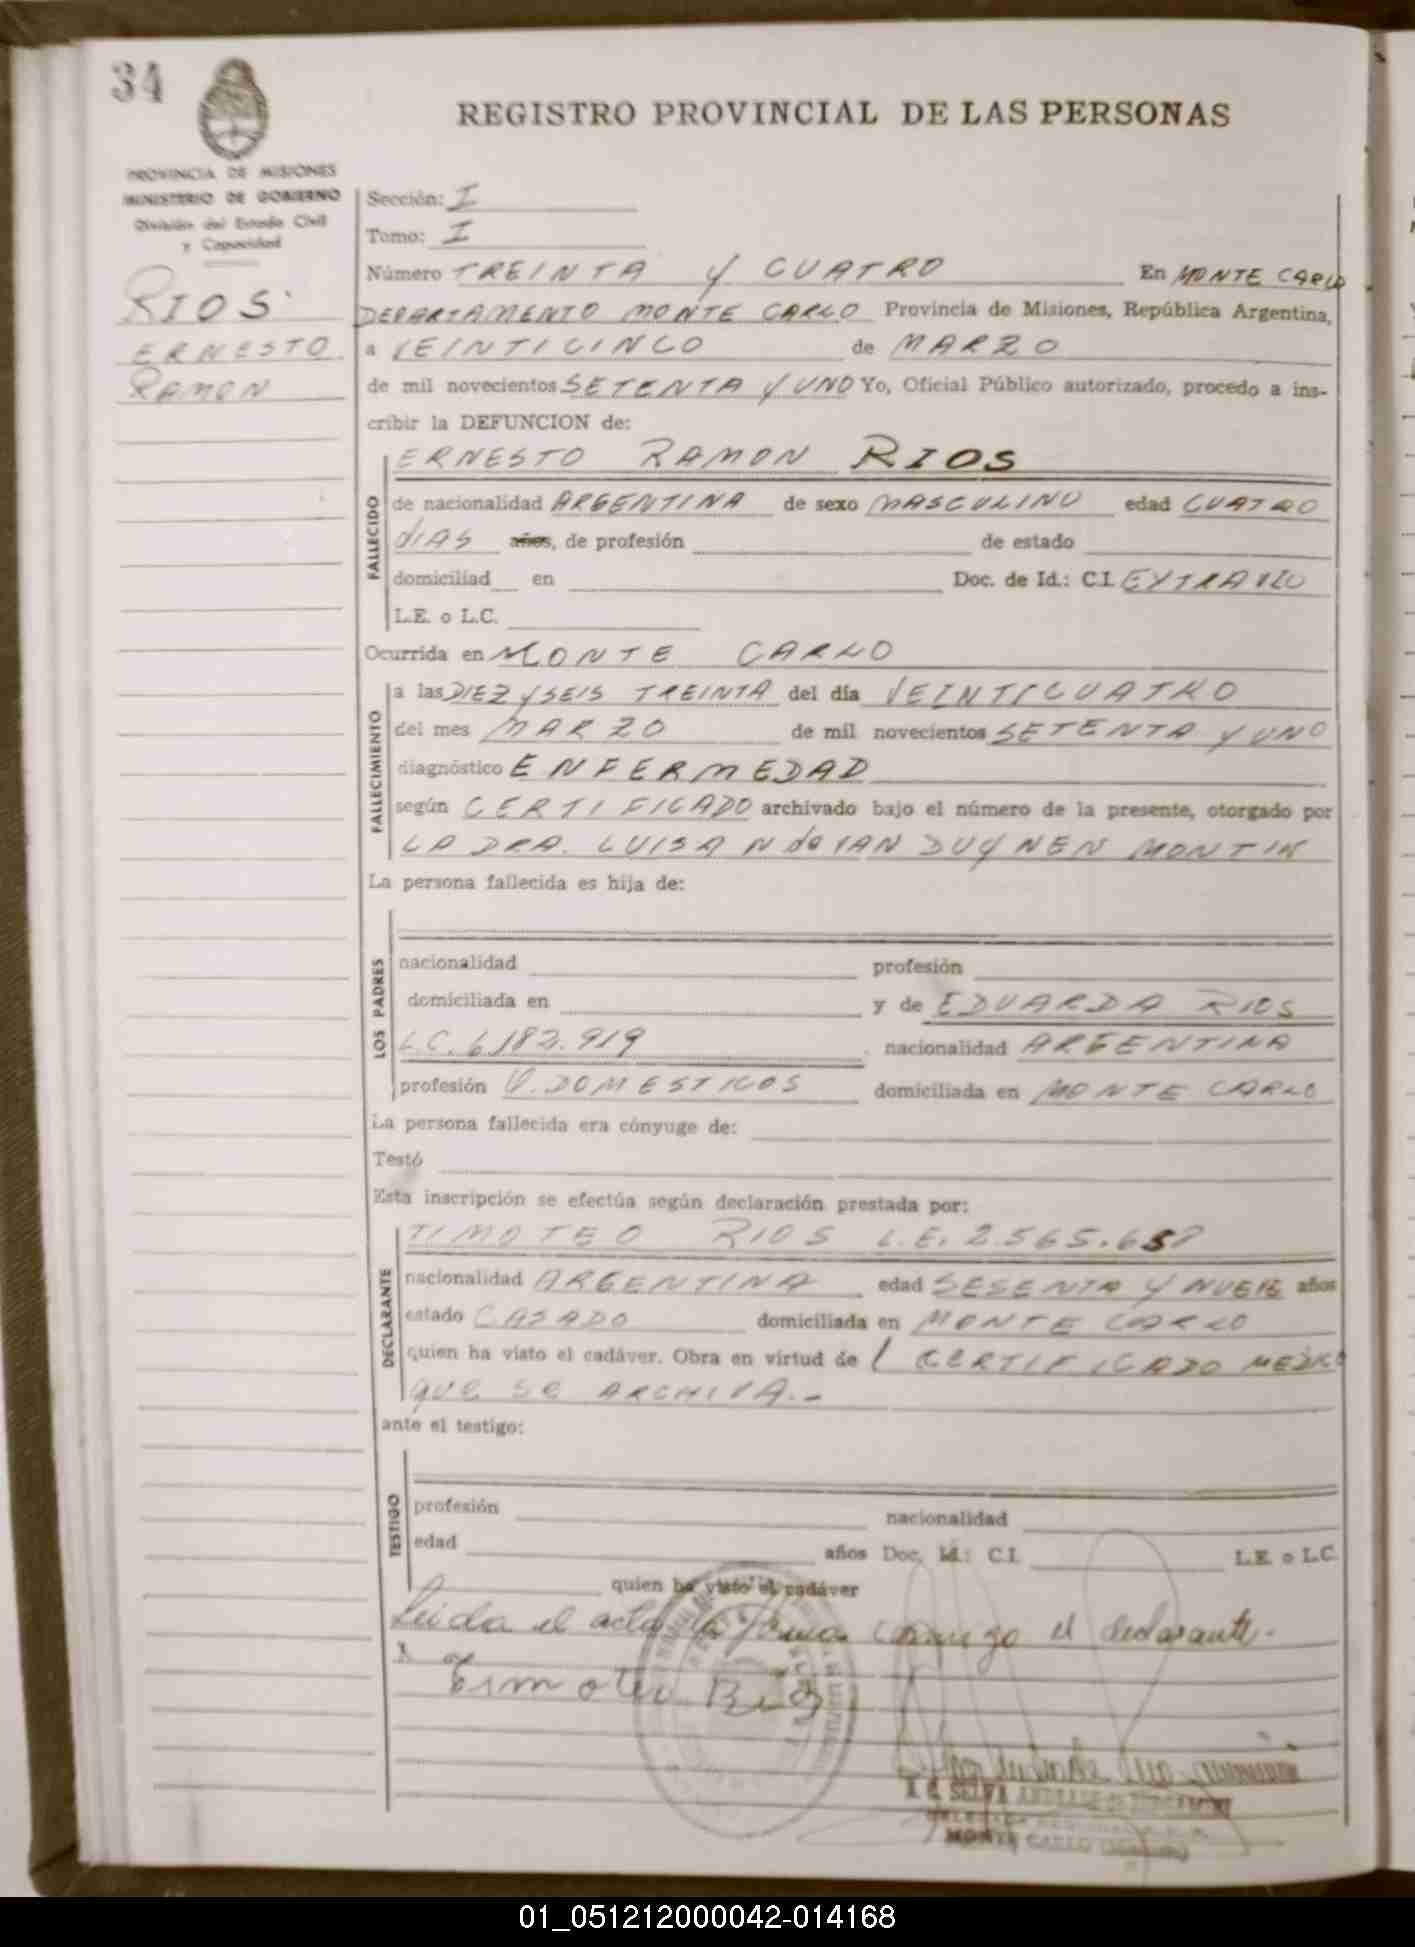 34
REGISTRO PROVINCIAL DE LAS PERSONAS
PROVINCIA DE MISIONES
MINISTERIO DE GOBIERNO
División del Estado Civil
y Capacidad
RIOS
ERNESTO
RAMON
Sección: I
Tomo: I
Número TREINTA Y CUATRO En MONTE CARLO
DEPARTAMENTO MONTE CARLO Provincia de Misiones, República Argentina,
a VEINTICINCO de MARZO
de mil novecientos SETENTA Y UNO Yo, Oficial Público autorizado, procedo a ins-
cribir la DEFUNCION de:
ERNESTO RAMON RIOS
FALLECIDO
de nacionalidad ARGENTINA de sexo MASCULINO edad CUATRO
DIAS años, de profesión de estado
domiciliad en Doc. de Id.: C.I. EXTRAVIO
L.E. o L.C.
Ocurrida en MONTE CARLO
FALLECIMIENTO
a las DIEZ Y SEIS TREINTA del día VEINTICUATRO
del mes MARZO de mil novecientos SETENTA Y UNO
diagnóstico ENFERMEDAD
según CERTIFICADO archivado bajo el número de la presente, otorgado por
LA DRA. LUISA N de VAN DUYNEN MONTIN
La persona fallecida es hija de:
LOS PADRES
nacionalidad profesión
domiciliada en y de EDUARDA RIOS
L.C. 6.182.919 nacionalidad ARGENTINA
profesión Q. DOMESTICOS domiciliada en MONTE CARLO
La persona fallecida era cónyuge de:
Testó
Esta inscripción se efectúa según declaración prestada por:
DECLARANTE
TIMOTEO RIOS L.E. 2.565.
nacionalidad ARGENTINA edad SESENTA Y NUEVE años
estado CASADO domiciliada en MONTE CARLO
quien ha visto el cadáver. Obra en virtud de CERTIFICADO MEDICO
QUE SE ARCHIVA.-
ante el testigo:
TESTIGO
profesión nacionalidad
edad años Doc. Id.: C.I. L.E. o L.C.
quien ha visto el cadáver
Leida el acta la firma conmigo el declarante.
Timoteo Rios
SELVA ANDRADE de
MONTE CARLO
01_051212000042-014168